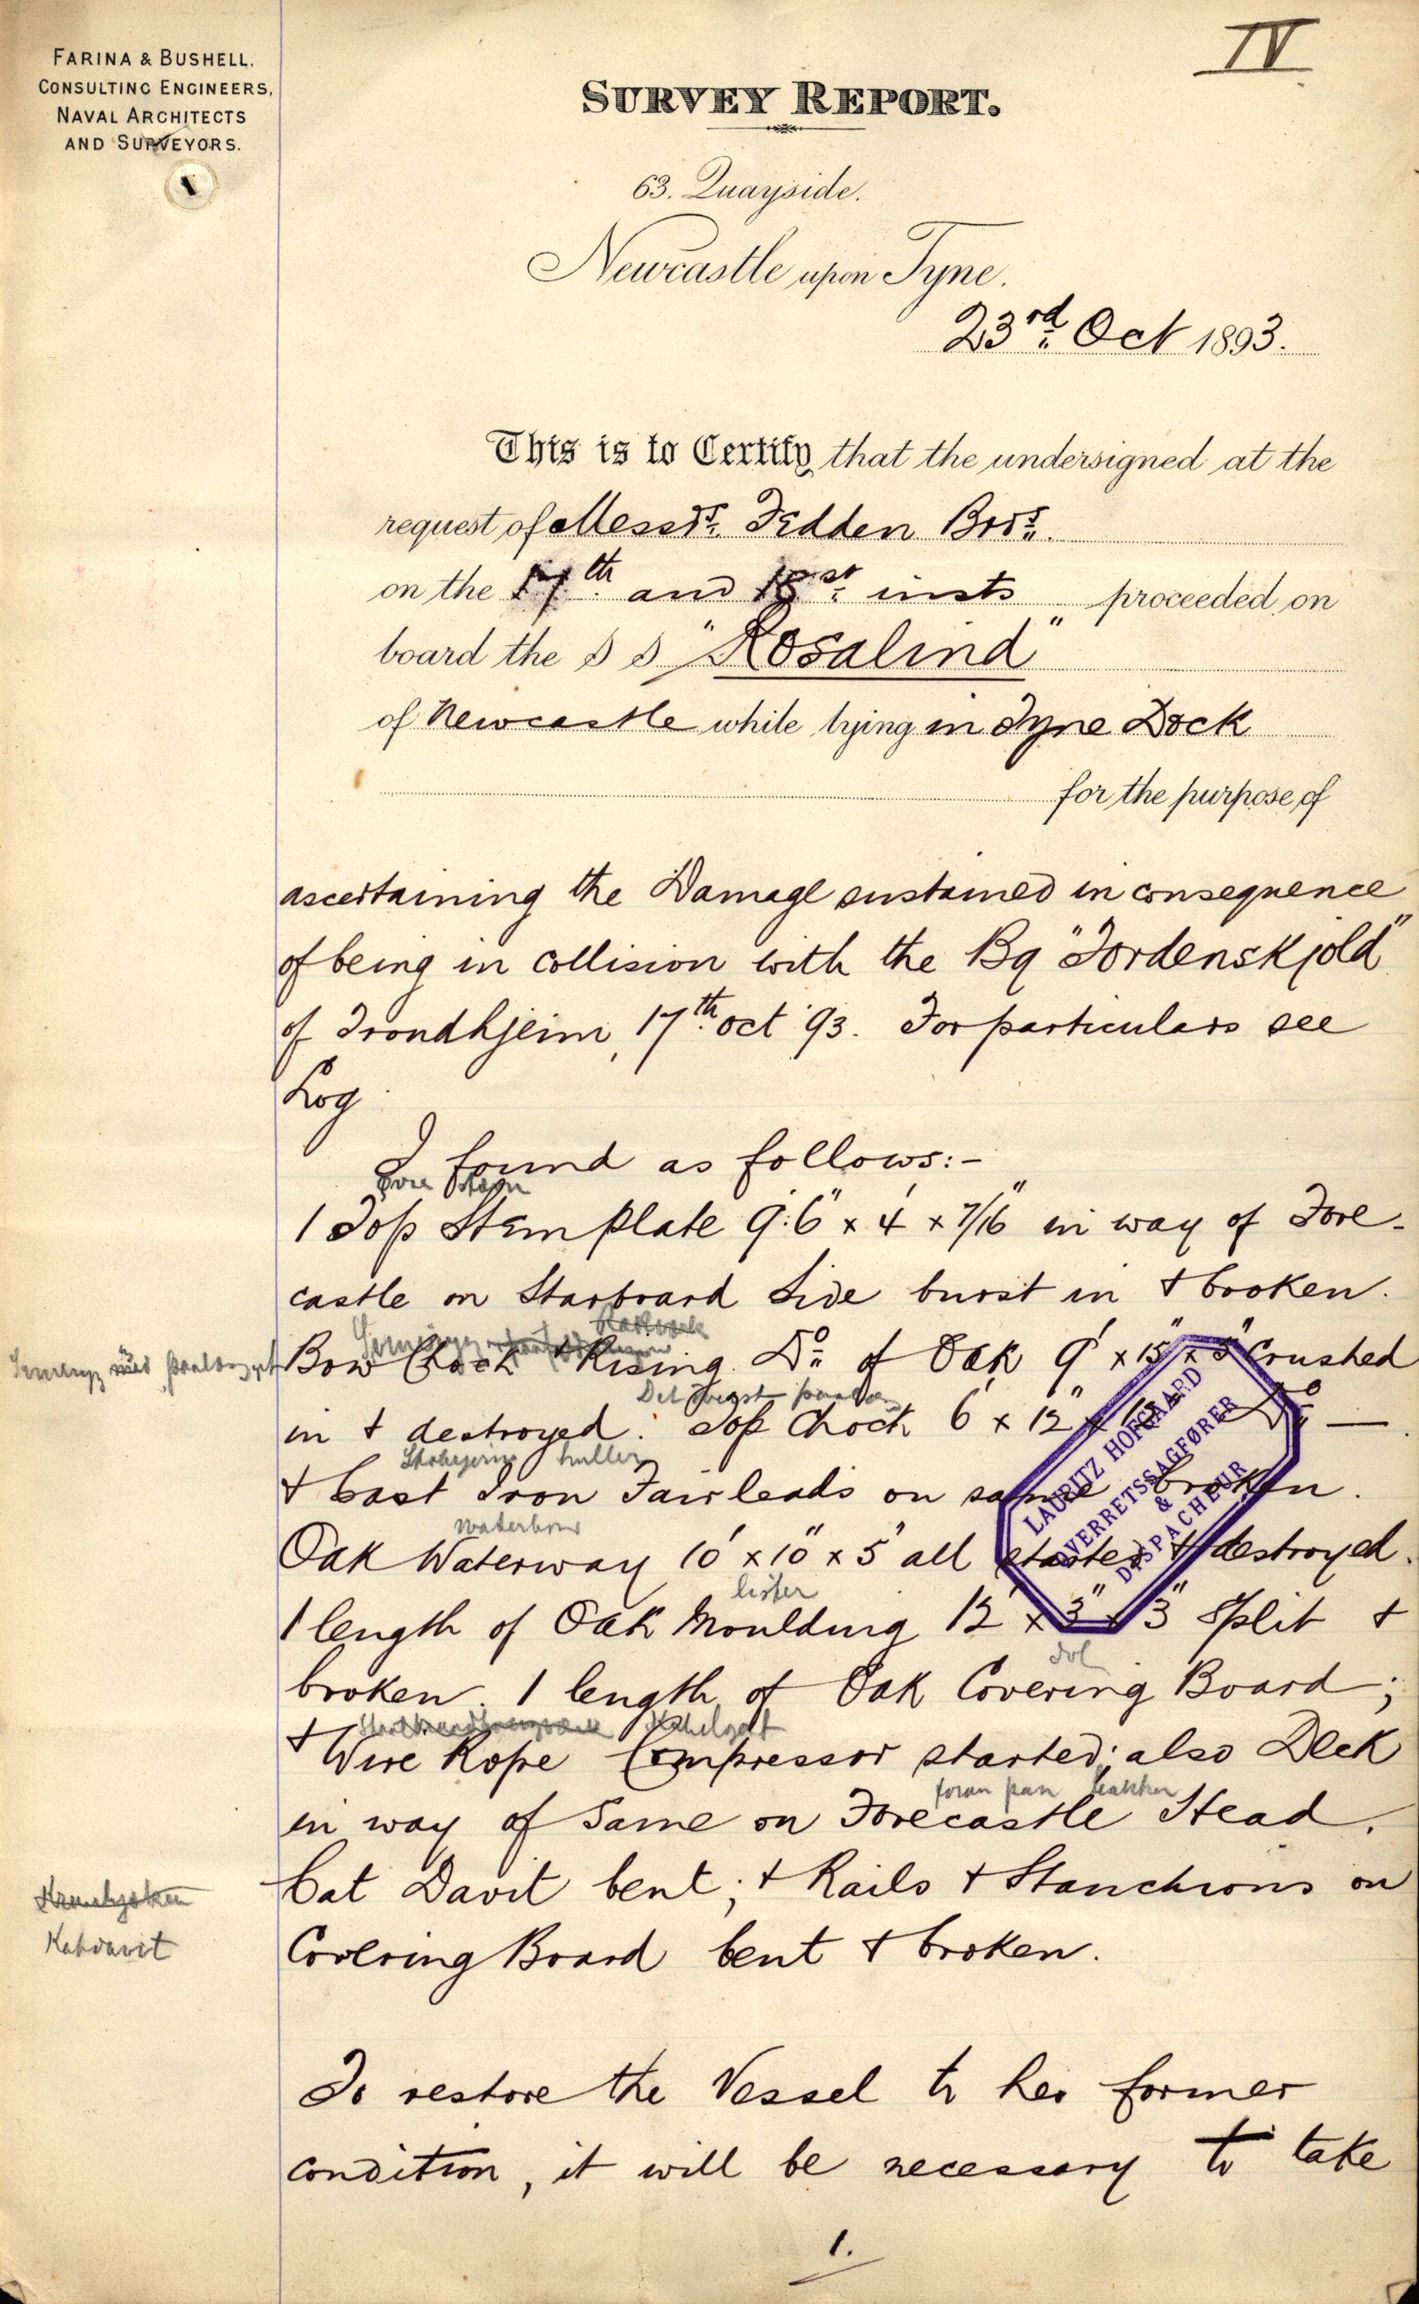 IV
FARINA & BUSHELL,
CONSULTING ENGINEERS,
NAVAL ARCHITECTS
AND SURVEYORS.
SURVEY REPORT.
63. Quayside.
Newcastle upon Tyne.
23rd Oct 1893.
This is to Certify that the undersigned at the
request of Messrs. Fedden Bros.
on the 17th and 18st insts proceeded on
board the S S "Rosalind"
of Newcastle while lying in Tyne Dock
for the purpose of
ascertaining the Damage sustained in consequence
of being in collision with the Bq "Tordenskjold"
of Trondhjeim, 17th Oct '93. For particulars see
Log
I found as follows:-
1 Top Stem Plate 9':6" x 4' x 7/16" in way of Fore-
castle on Starboard Side burst in & broken.
Bow Chock & Rising Do of Oak 9' x 15" x 5" Crushed
in & destroyed. Top Chock 6' x 12" x 12" Do —
& Cast Iron Fairleads on same broken.
waterbord
Oak Waterway 10' x 10" x 5" all started & destroyed.
lister
1 length of Oak Moulding 12' x 3" x 3" Split &
broken. 1 length of Oak Covering Board;
& Wire Rope Compressor started; also Deck
foran paa bakken
in way of Same on Forecastle Head.
Cat Davit bent; & Rails & Stanchions on
Katdavit
Covering Board bent & broken.
To restore the Vessel to her former
condition, it will be necessary to take
1.
LAURITZ HOFGAARD
OVERRETSSAGFØRER
&
DISPACHEUR